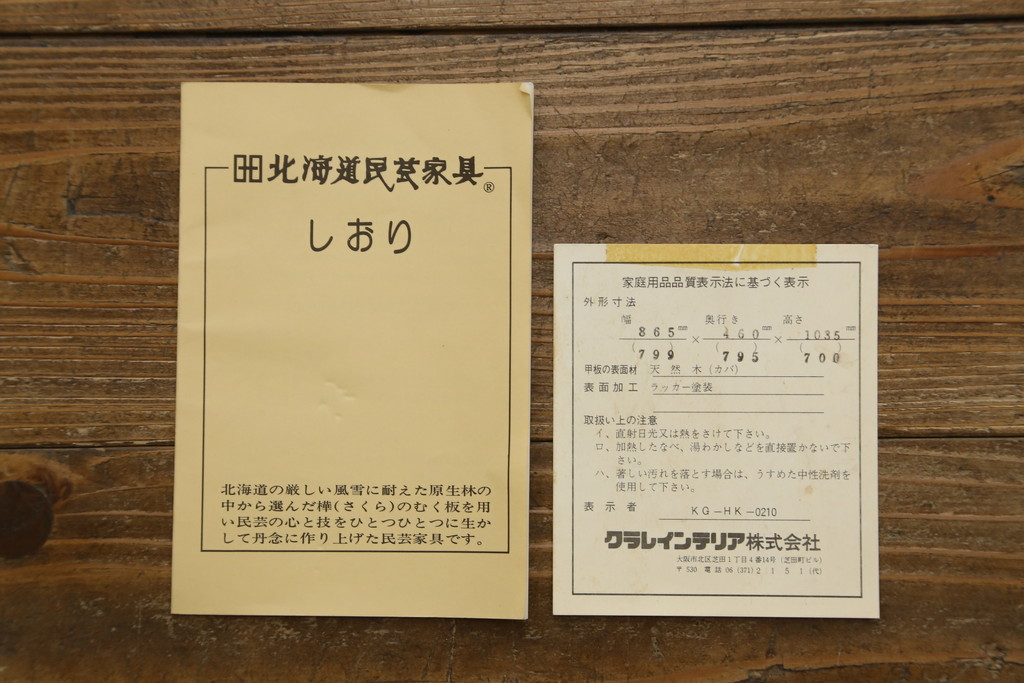 北海道民芸家具®
しおり
北海道の厳しい風雪に耐えた原生林の
中から選んだ樺(さくら)のむく板を用
い民芸の心と技をひとつひとつに生か
して丹念に作り上げた民芸家具です。
家庭用品品質表示法に基づく表示
外形寸法
幅 奥行き 高さ
865mm × 460mm × 1035mm
(799) (795) (700)
甲板の表面材 天然木(カバ)
表面加工 ラッカー塗装
取扱い上の注意
イ、直射日光又は熱をさけて下さい。
ロ、加熱したなべ、湯わかしなどを直接置かないで下
さい。
ハ、著しい汚れを落とす場合は、うすめた中性洗剤を
使用して下さい。
表示者 KG-HK-0210
クラレインテリア株式会社
大阪市北区芝田1丁目4番14号(芝田町ビル)
〒530 電話 06(371)2151(代)